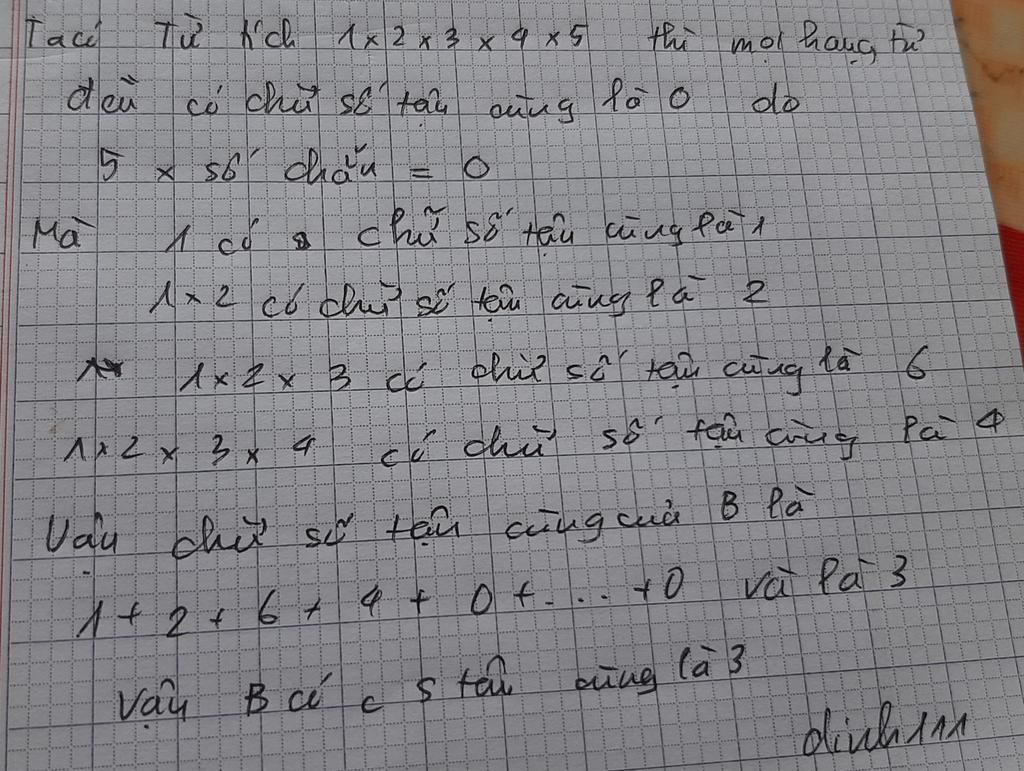 Ta có Từ tích 1 x 2 x 3 x 4 x 5 thì mọi hạng tử
đều có chữ số tận cùng là 0 do
5 x số chẵn = 0
Mà 1 có chữ số tận cùng là 1
1 x 2 có chữ số tận cùng là 2
1 x 2 x 3 có chữ số tận cùng là 6
1 x 2 x 3 x 4 có chữ số tận cùng là 4
Vậy chữ số tận cùng của B là
1 + 2 + 6 + 4 + 0 + .... + 0 và là 3
Vậy B có c s tận cùng là 3
dinh111